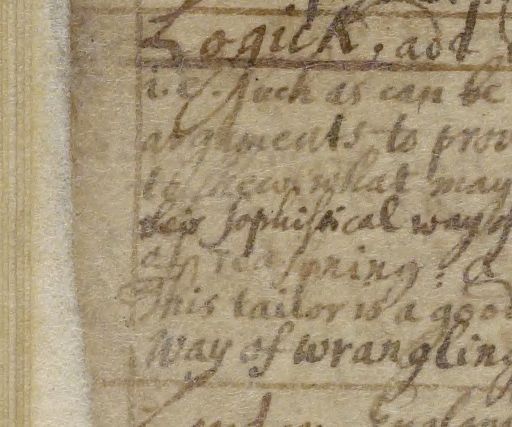 Logick, adt
i.e. such as can be
arguments to prov
to shew what may
their sophistical way of
reasoning: &
This tailor is a good
Way of wrangling
London England